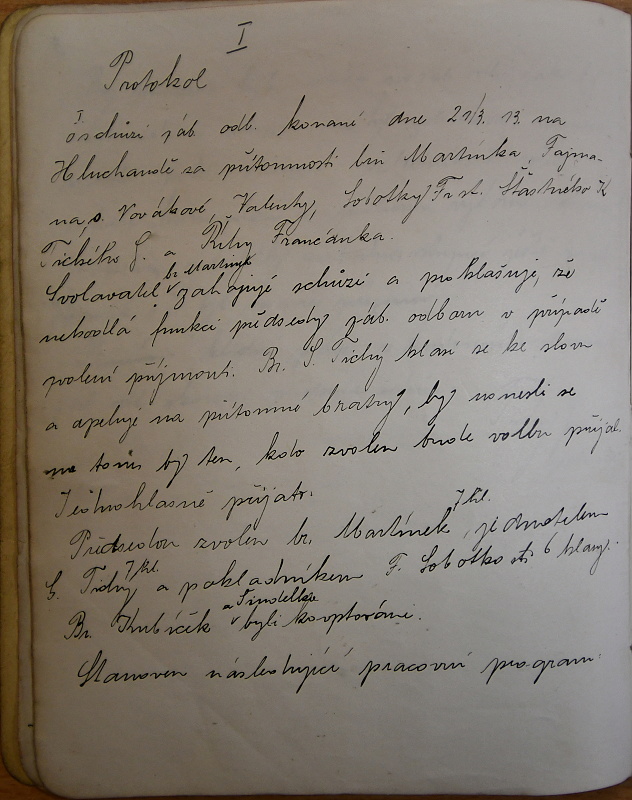 I
Protokol
I
o schůzi záb. odb. konané dne 21/3. 13. na
Hluchandě za přítomnosti bří Martínka, Fajma-
na, s. Novákové, Valenty, Sobotky Fr. st. Šťastného K
Tichého S. a Říhy Frančánka.
br. Martínek
Svolavatel zahajuje schůzi a prohlašuje, že
nehodlá funkci předsedy záb. odboru v případě
zvolení přijmouti. Br. S. Tichý hlásí se ke slovu
a apeluje na přítomné bratry, by usnesli se
na tom, by ten, kdo zvolen bude volbu přijal.
Jednohlasně přijato.
7 hl.
Předsedou zvolen br. Martínek, jednatelem
7 hl.
S. Tichý a pokladníkem F. Sobotka st. 6 hlasy.
a Šindelka
Br. Kubíček byli kooptováni.
Stanoven následující pracovní program: